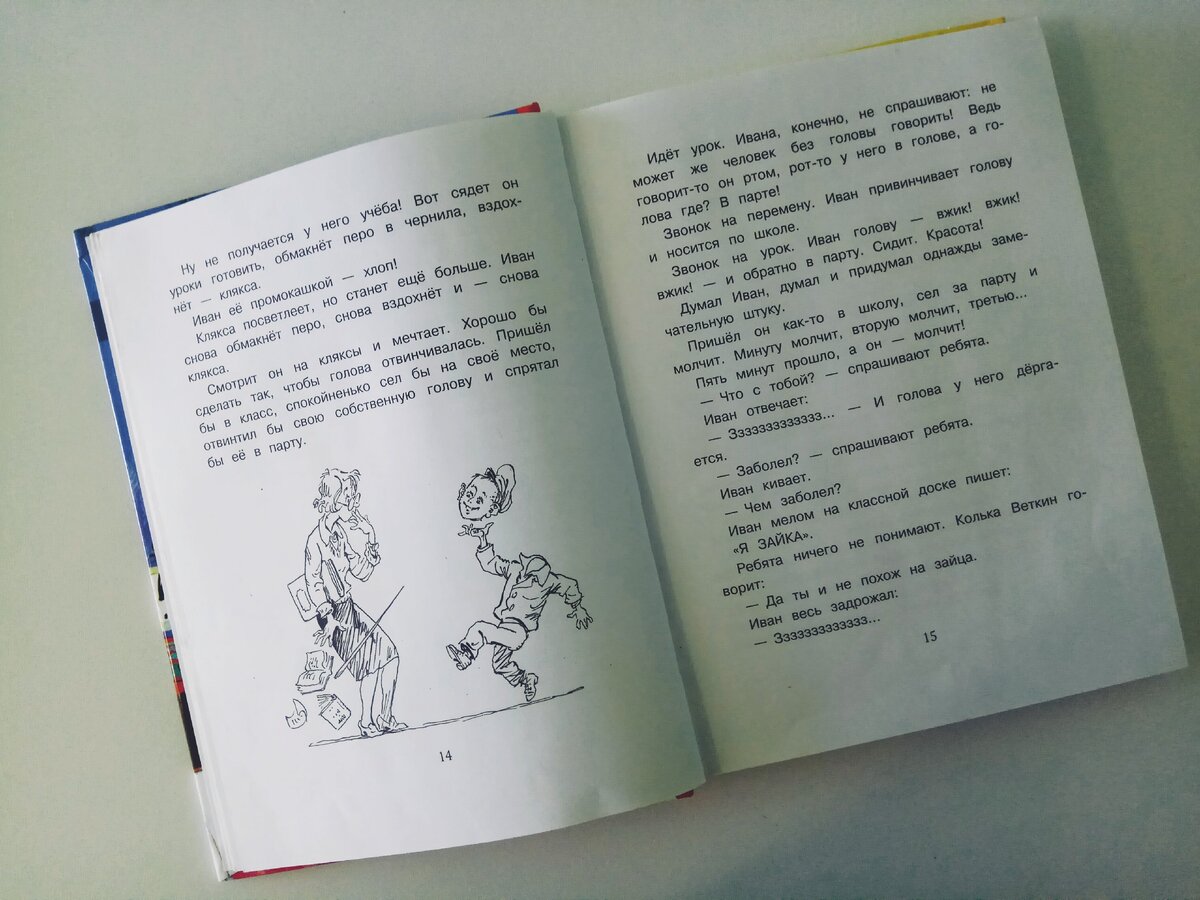 Ну не получается у него учёба! Вот сядет он
уроки готовить, обмакнёт перо в чернила, вздох-
нёт — клякса.
Иван её промокашкой — хлоп!
Клякса посветлеет, но станет ещё больше. Иван
снова обмакнёт перо, снова вздохнёт и — снова
клякса.
Смотрит он на кляксы и мечтает. Хорошо бы
сделать так, чтобы голова отвинчивалась. Пришёл
бы в класс, спокойненько сел бы на своё место,
отвинтил бы свою собственную голову и спрятал
бы её в парту.
14
Идёт урок. Ивана, конечно, не спрашивают: не
может же человек без головы говорить! Ведь
говорит-то он ртом, рот-то у него в голове, а го-
лова где? В парте!
Звонок на перемену. Иван привинчивает голову
и носится по школе.
Звонок на урок. Иван голову — вжик! вжик!
вжик! — и обратно в парту. Сидит. Красота!
Думал Иван, думал и придумал однажды заме-
чательную штуку.
Пришёл он как-то в школу, сел за парту и
молчит. Минуту молчит, вторую молчит, третью...
Пять минут прошло, а он — молчит!
— Что с тобой? — спрашивают ребята.
Иван отвечает:
— Ззззззззззззз... — И голова у него дёрга-
ется.
— Заболел? — спрашивают ребята.
Иван кивает.
— Чем заболел?
Иван мелом на классной доске пишет:
«Я ЗАЙКА».
Ребята ничего не понимают. Колька Веткин го-
ворит:
— Да ты и не похож на зайца.
Иван весь задрожал:
— Ззззззззззззз...
15